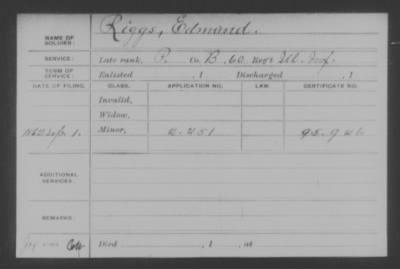 Riggs, Edmund.
NAME OF SOLDIER:
SERVICE: Late rank, P. Co. B, 60 Reg't Ill. Inf.
TERM OF SERVICE: Enlisted , 1 Discharged , 1
DATE OF FILING. CLASS. APPLICATION NO. LAW. CERTIFICATE NO.
Invalid,
Widow,
1862 1. Minor, 2.251 95.926
ADDITIONAL SERVICES:
REMARKS:
Died , 1 , at